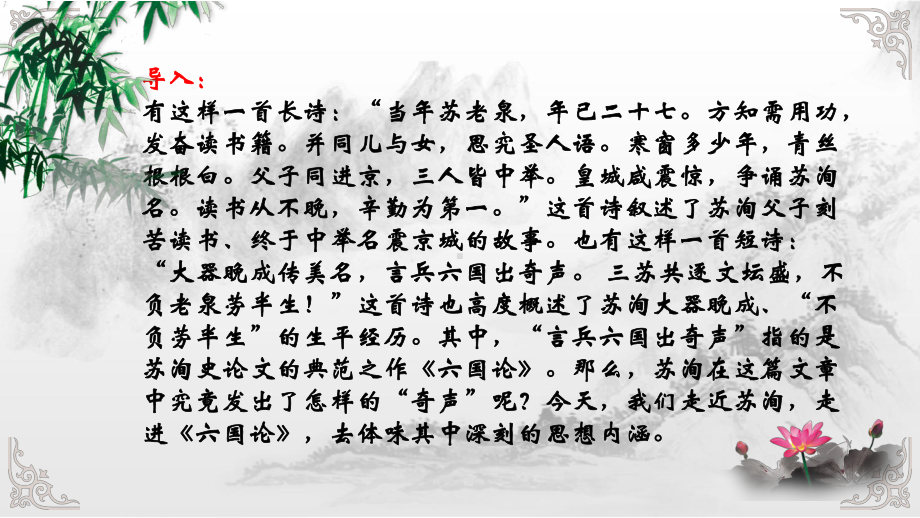 导入：
有这样一首长诗：“当年苏老泉，年已二十七。方知需用功，
发奋读书籍。并同儿与女，思究圣人语。寒窗多少年，青丝
根根白。父子同进京，三人皆中举。皇城咸震惊，争诵苏洵
名。读书从不晚，辛勤为第一。”这首诗叙述了苏洵父子刻
苦读书、终于中举名震京城的故事。也有这样一首短诗：
“大器晚成传美名，言兵六国出奇声。 三苏共逐文坛盛，不
负老泉劳半生！”这首诗也高度概述了苏洵大器晚成、“不
负劳半生”的生平经历。其中，“言兵六国出奇声”指的是
苏洵史论文的典范之作《六国论》。那么，苏洵在这篇文章
中究竟发出了怎样的“奇声”呢？今天，我们走近苏洵，走
进《六国论》，去体味其中深刻的思想内涵。